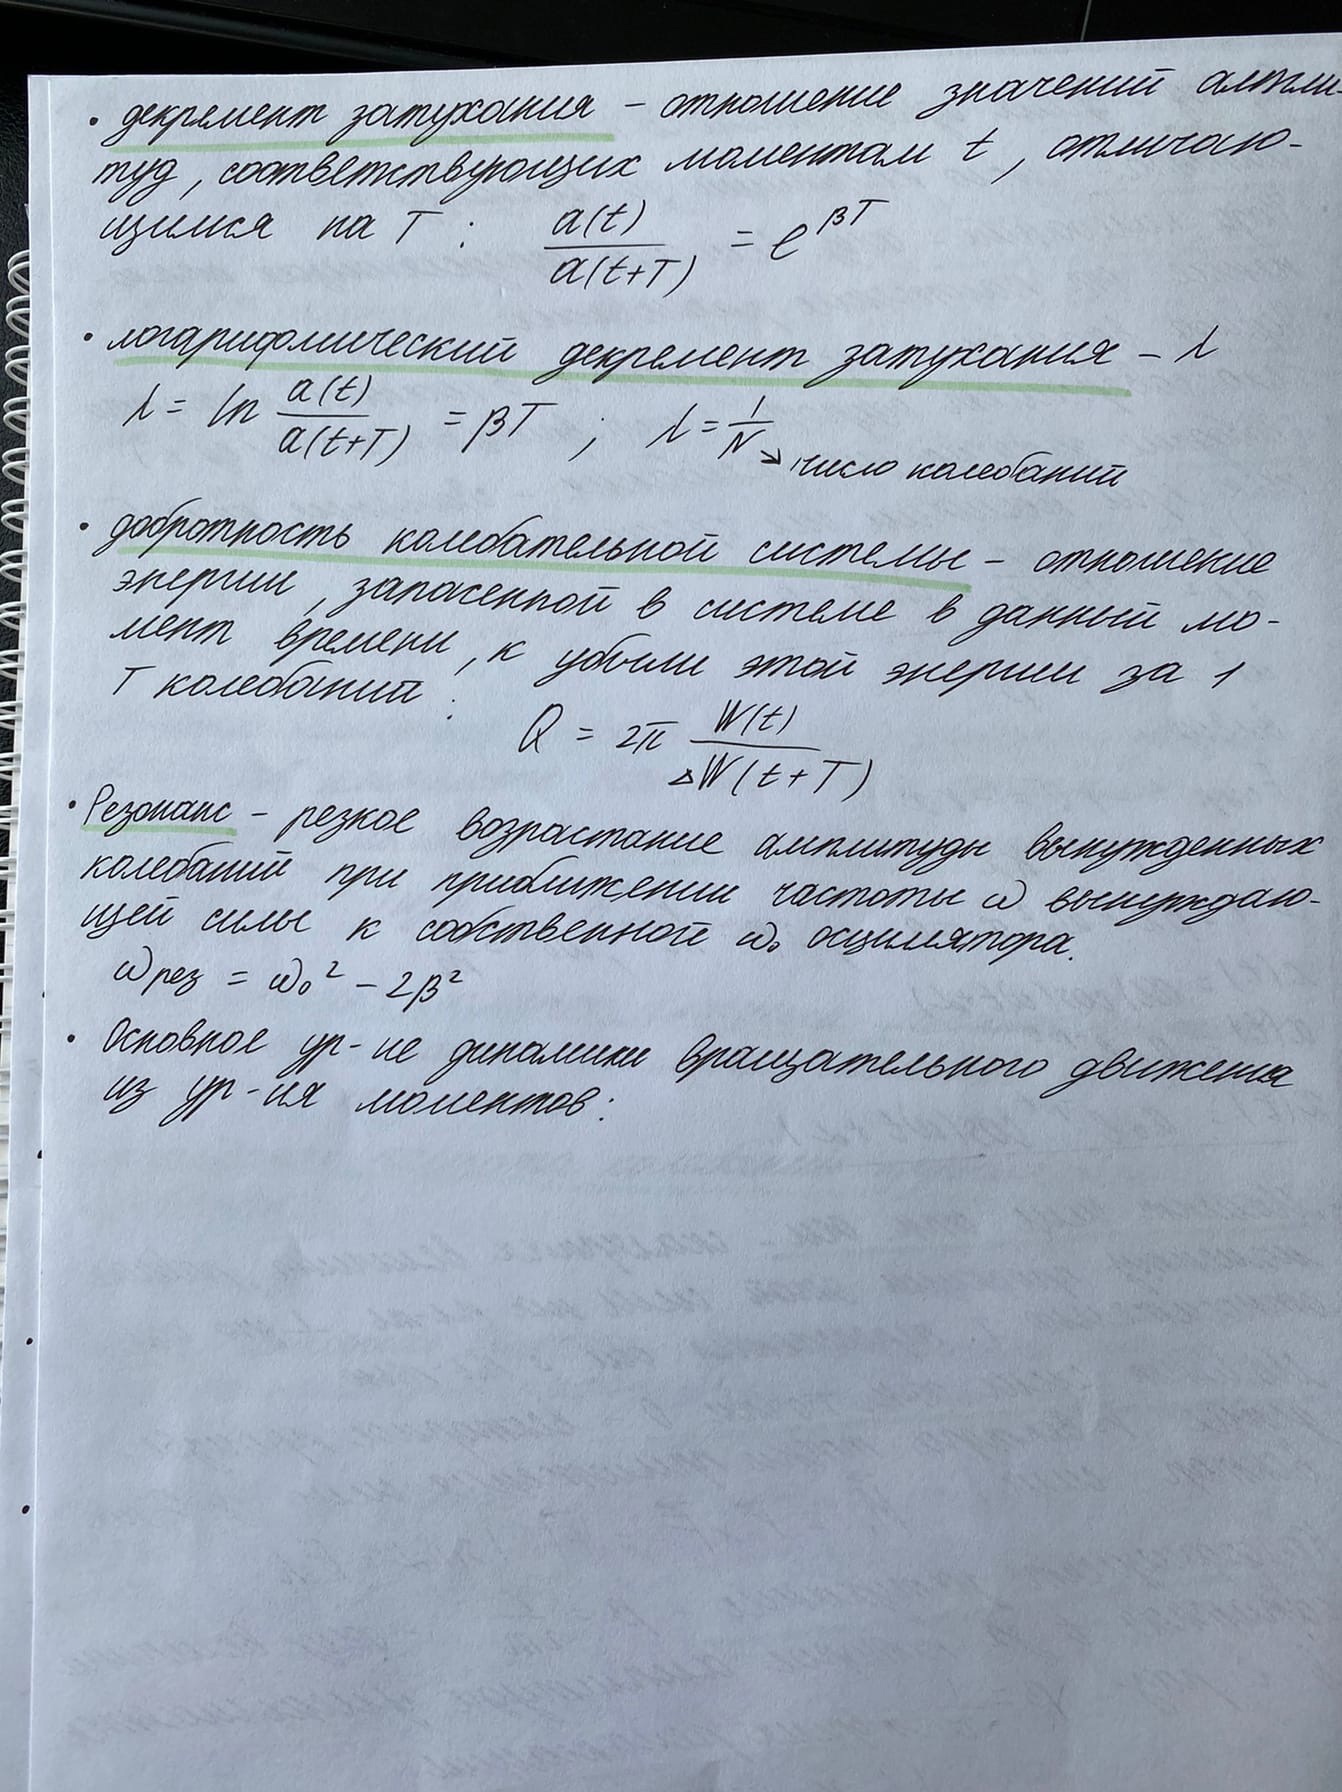 • декремент затухания – отношение значений ампли-
туд, соответствующих моментам t, отличаю-
щимся на T : a(t) / a(t+T) = e^βT
• логарифмический декремент затухания – λ
λ = ln a(t) / a(t+T) = βT ; λ = 1/N
↘ число колебаний
• добротность колебательной системы – отношение
энергии, запасенной в системе в данный мо-
мент времени, к убыли этой энергии за 1
T колебаний :
Q = 2π W(t) / ΔW(t+T)
• Резонанс – резкое возрастание амплитуды вынужденных
колебаний при приближении частоты ω вынуждаю-
щей силы к собственной ω₀ осциллятора.
ωрез = ω₀² – 2β²
• Основное ур-ие динамики вращательного движения
из ур-ия моментов: